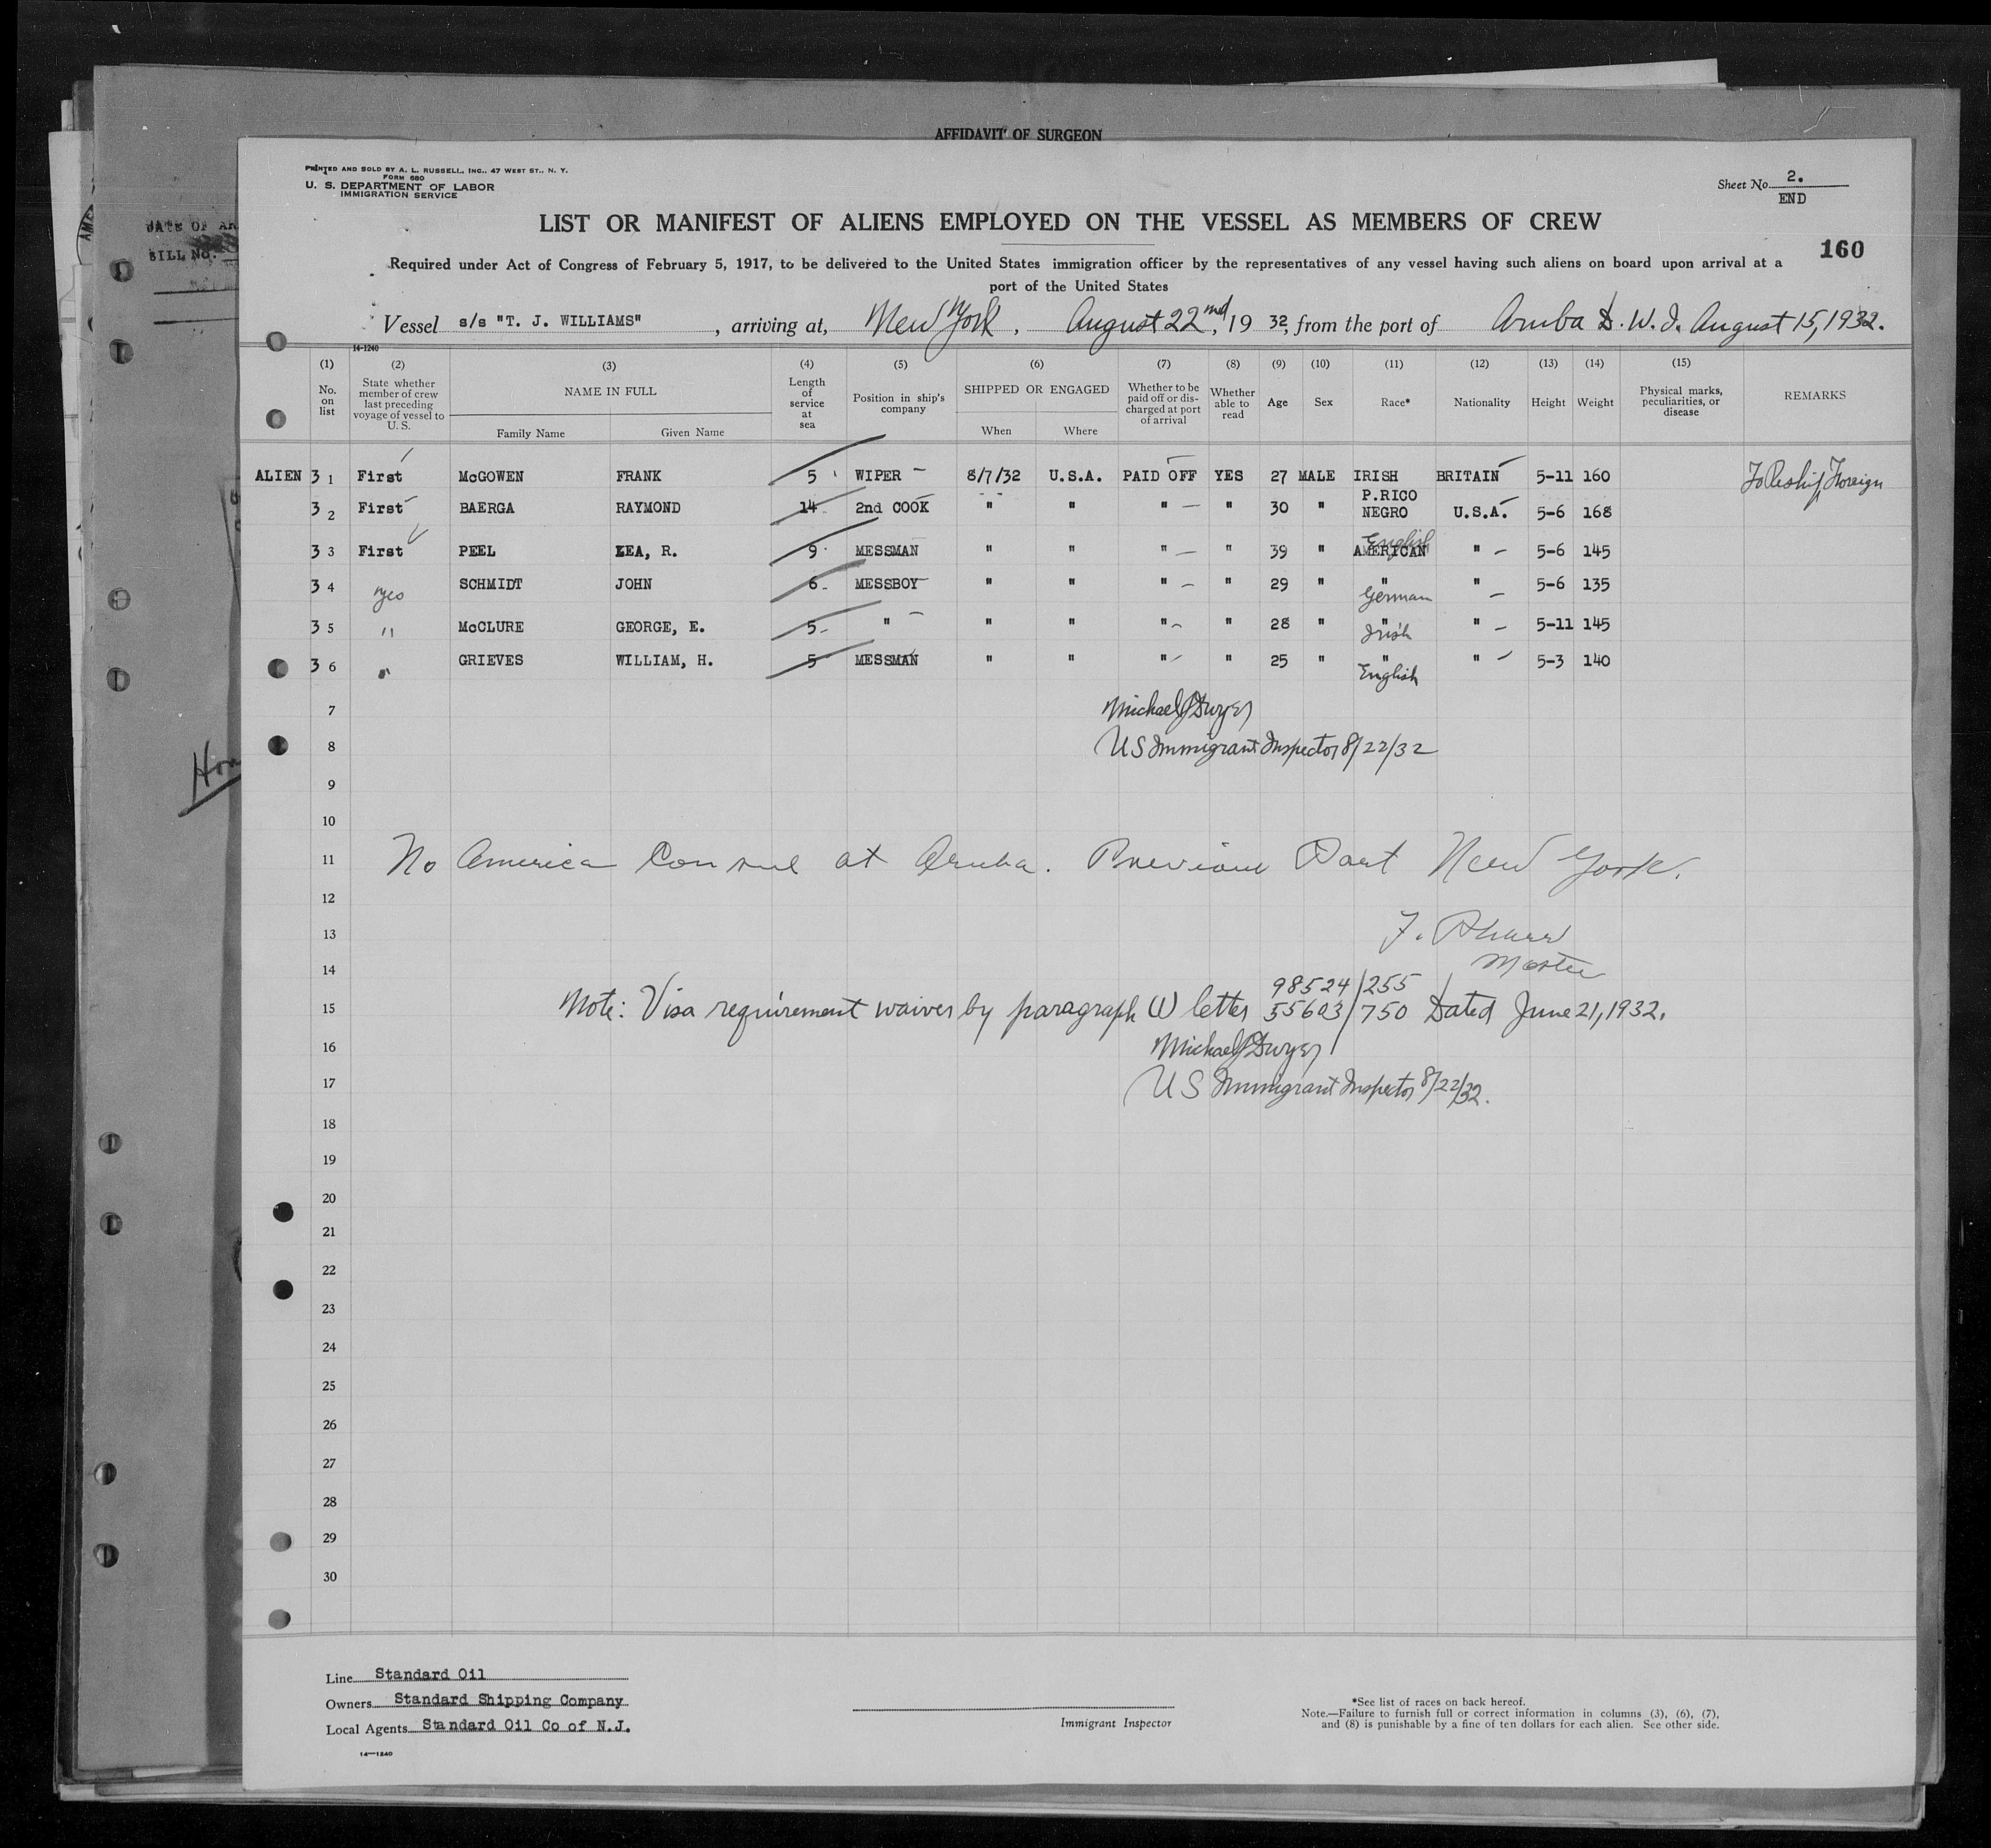 AFFIDAVIT OF SURGEON
PRINTED AND SOLD BY A. L. RUSSELL, INC., 47 WEST ST., N. Y.
FORM 680
U. S. DEPARTMENT OF LABOR
IMMIGRATION SERVICE
Sheet No. 2.
END
LIST OR MANIFEST OF ALIENS EMPLOYED ON THE VESSEL AS MEMBERS OF CREW
160
Required under Act of Congress of February 5, 1917, to be delivered to the United States immigration officer by the representatives of any vessel having such aliens on board upon arrival at a
port of the United States
DATE OF AR
BILL No.
Vessel s/s "T. J. WILLIAMS", arriving at, New York, August 22nd, 1932, from the port of Aruba D. W. I. August 15, 1932.
14-1240
(1) (2) (3) (4) (5) (6) (7) (8) (9) (10) (11) (12) (13) (14) (15)
No. on list
State whether member of crew last preceding voyage of vessel to U. S.
NAME IN FULL
Family Name Given Name
Length of service at sea
Position in ship's company
SHIPPED OR ENGAGED
When Where
Whether to be paid off or discharged at port of arrival
Whether able to read
Age
Sex
Race*
Nationality
Height
Weight
Physical marks, peculiarities, or disease
REMARKS
ALIEN 3 1 First McGOWEN FRANK 5 WIPER 8/7/32 U.S.A. PAID OFF YES 27 MALE IRISH BRITAIN 5-11 160 To Reship Foreign
3 2 First BAERGA RAYMOND 14 2nd COOK " " " " 30 " P.RICO NEGRO U.S.A. 5-6 168
3 3 First PEEL LEA, R. 9 MESSMAN " " " " 39 " AMERICAN English " 5-6 145
3 4 yes SCHMIDT JOHN 6 MESSBOY " " " " 29 " " German " 5-6 135
3 5 " McCLURE GEORGE, E. 5 " " " " " 28 " " Irish " 5-11 145
3 6 " GRIEVES WILLIAM, H. 5 MESSMAN " " " " 25 " " English " 5-3 140
7 Michael J Dwyer
8 US Immigrant Inspector 8/22/32
Hon
9
10
11 No America Consul at Aruba. Previous Port New York.
12
13 F.
14 Master
98524/255
15 Note: Visa requirement waiver by paragraph (1) letter 55603/750 Dated June 21, 1932.
16 Michael J Dwyer
17 US Immigrant Inspector 8/22/32.
18
19
20
21
22
23
24
25
26
27
28
29
30
Line Standard Oil
Owners Standard Shipping Company
Local Agents Standard Oil Co of N.J.
14-1240
Immigrant Inspector
*See list of races on back hereof.
Note.—Failure to furnish full or correct information in columns (3), (6), (7),
and (8) is punishable by a fine of ten dollars for each alien. See other side.